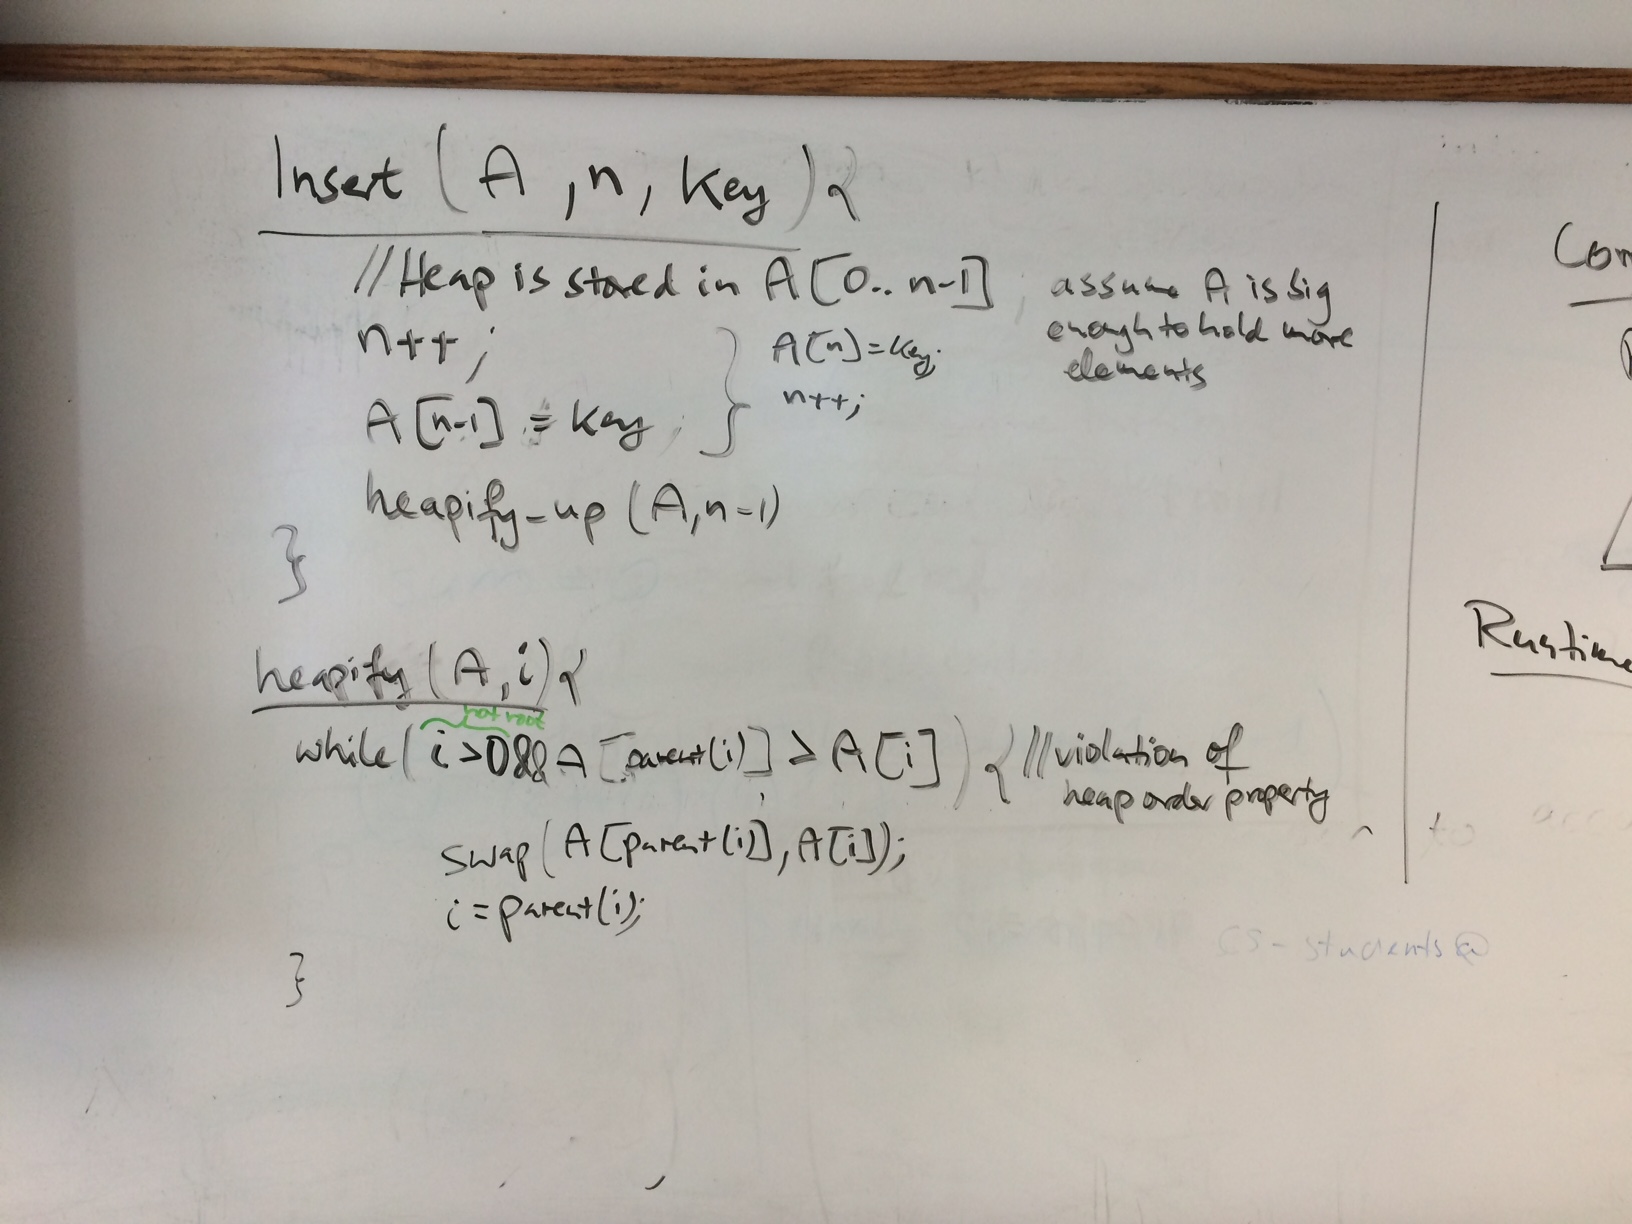 Insert (A, n, key) {
//Heap is stored in A[0..n-1], assume A is big
enough to hold more
elements
n++;
A[n-1] = key;
} A[n]=key;
n++;
heapify-up (A, n-1)
}
heapify (A, i) {
not root
while( i>0 && A[parent(i)] > A[i] ) { //violation of
heap order property
swap(A[parent(i)], A[i]);
i=parent(i);
}
Runtime
CS-students@